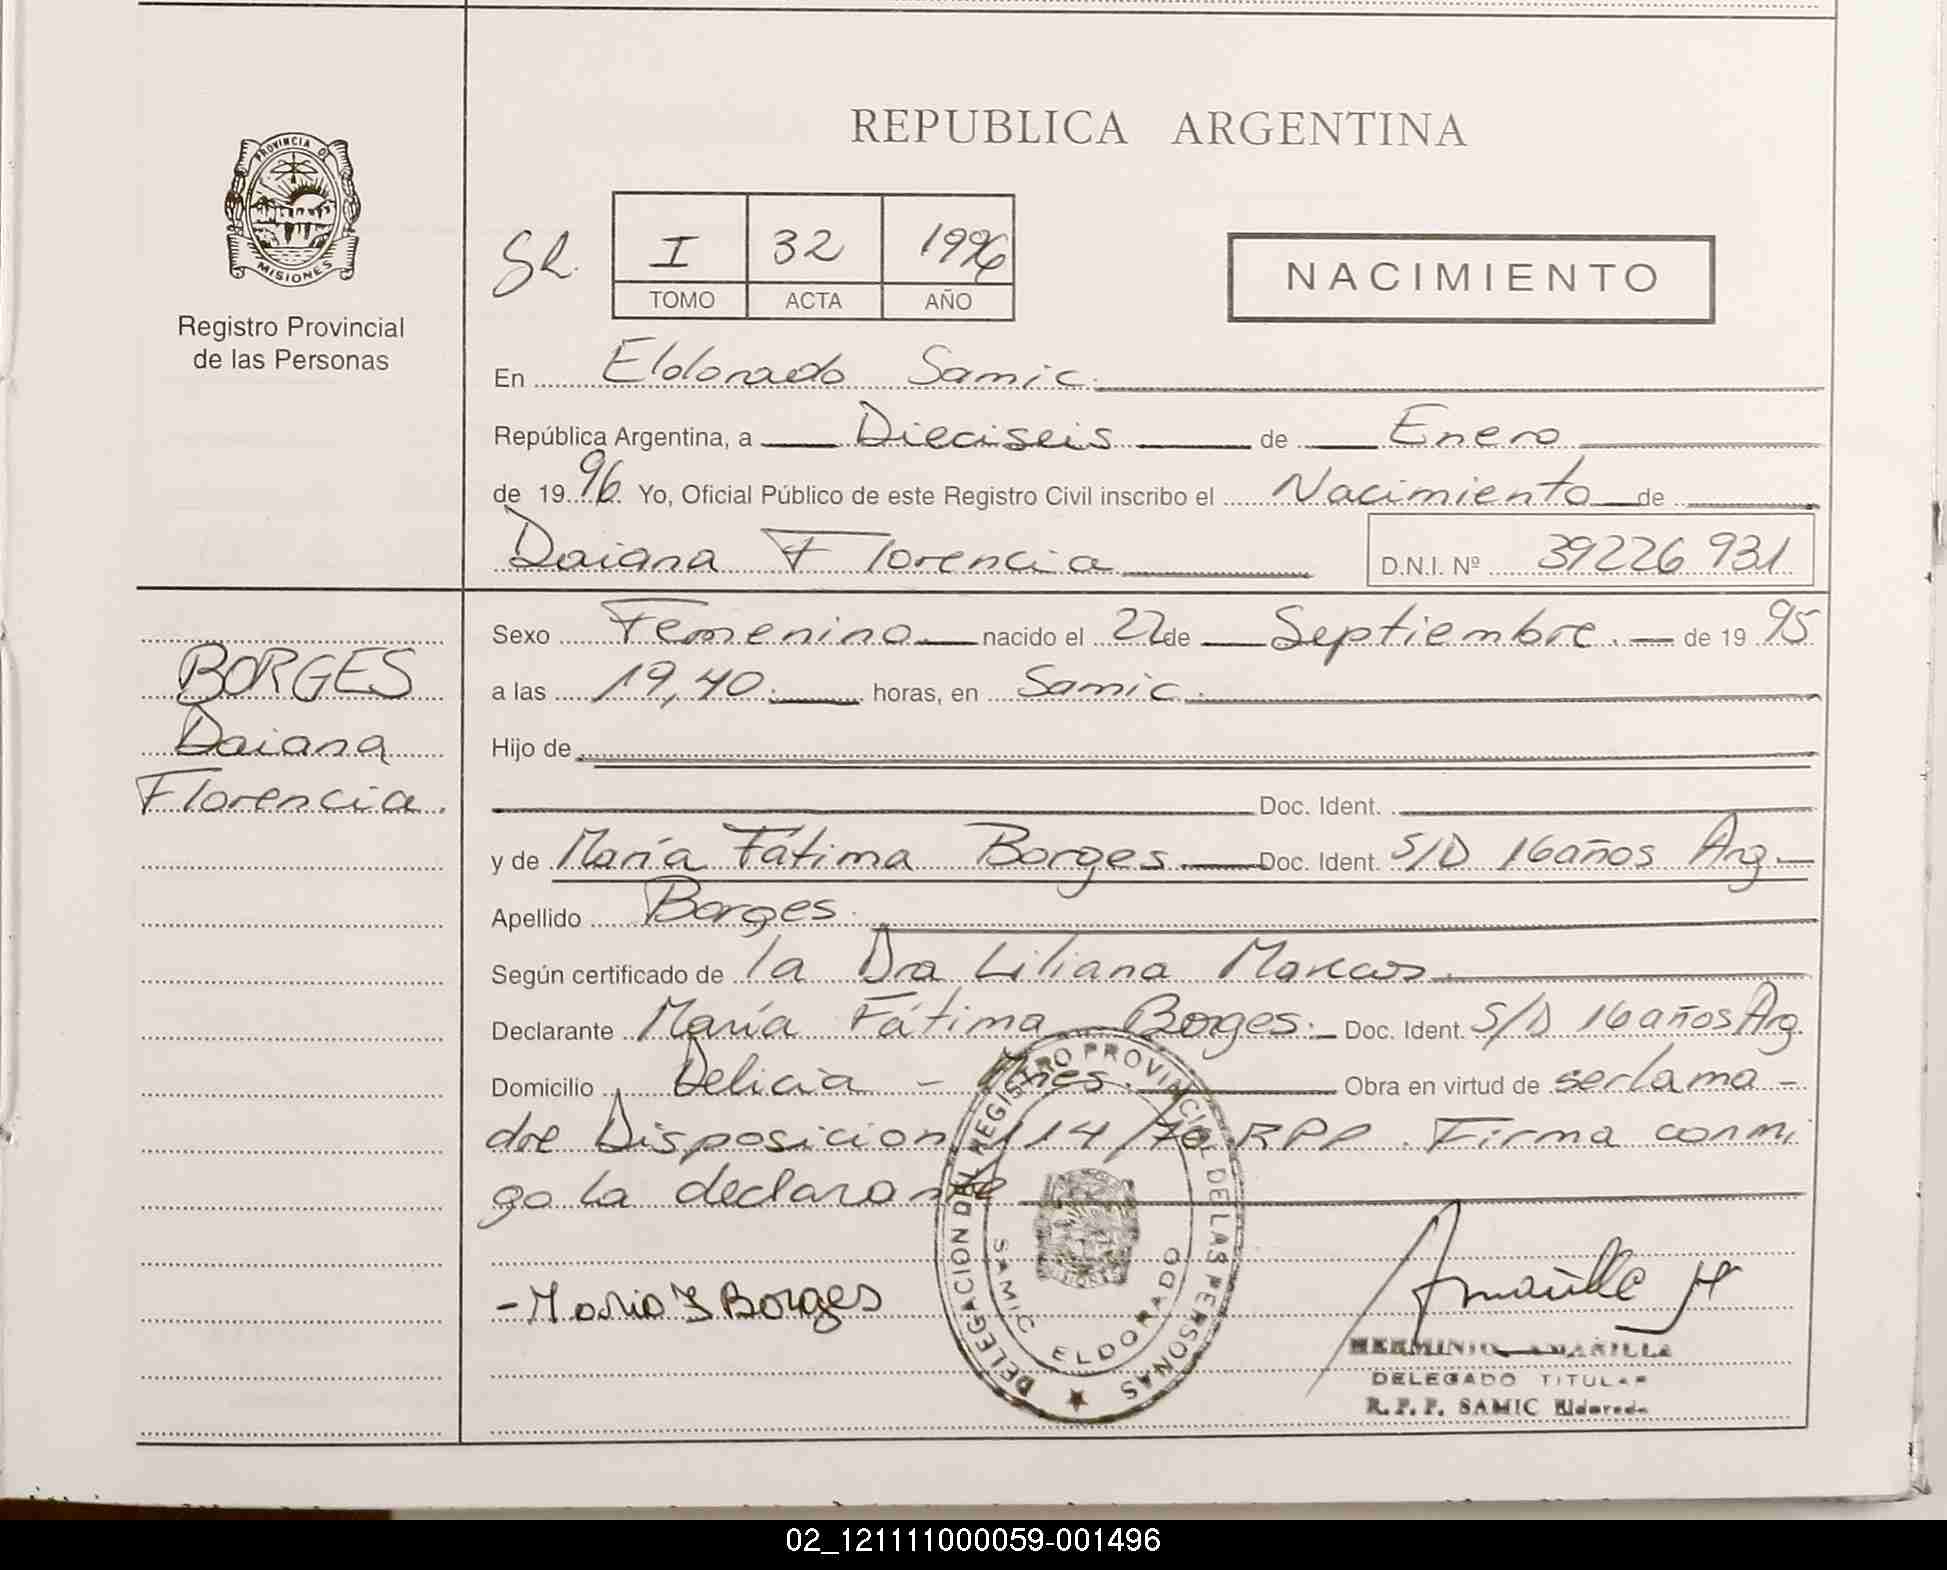 REPUBLICA ARGENTINA
PROVINCIA DE
MISIONES
Registro Provincial
de las Personas
I 32 1996
TOMO ACTA AÑO
NACIMIENTO
En Eldorado Samic.
República Argentina, a Dieciseis de Enero
de 19 96. Yo, Oficial Público de este Registro Civil inscribo el Nacimiento de
Daiana Florencia D.N.I. Nº 39226931
BORGES
Daiana
Florencia.
Sexo Femenino nacido el 22 de Septiembre. de 19 95
a las 19,40. horas, en Samic.
Hijo de
Doc. Ident.
y de María Fátima Borges. Doc. Ident. S/D 16 años Arg
Apellido Borges.
Según certificado de la Dra Liliana Marcos.
Declarante María Fátima Borges. Doc. Ident. S/D 16 años Arg.
Domicilio Delicia - Mnes. Obra en virtud de ser la ma-
dre Disposicion 114/70 RPP. Firma conmi
go la declarante
DELEGACION DEL REGISTRO PROVINCIAL DE LAS PERSONAS
SAMIC ELDORADO
- Maria F Borges
HERMINIO AMARILLA
DELEGADO TITULAR
R.P.P. SAMIC Eldorado
02_121111000059-001496